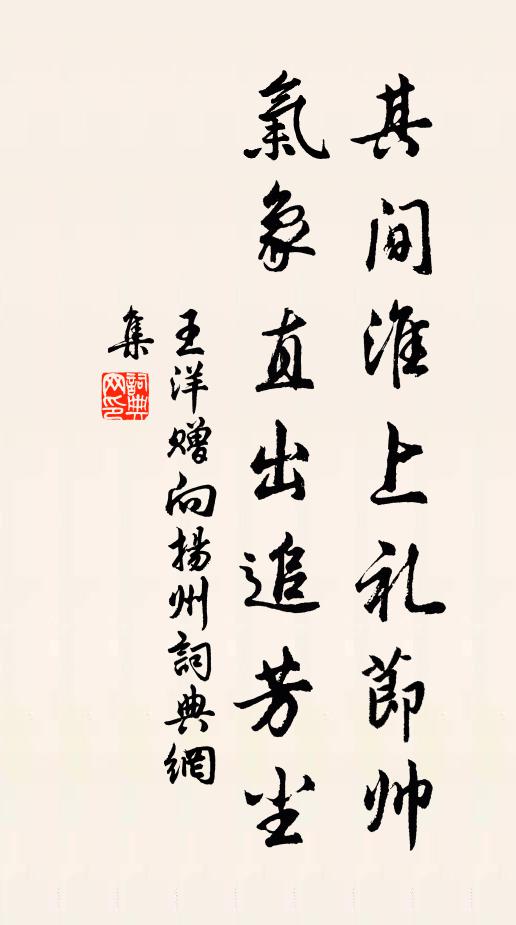 其间淮上礼節帅
氣象直出追芳尘
王洋赠向揚州詞典網
集
詞典网印